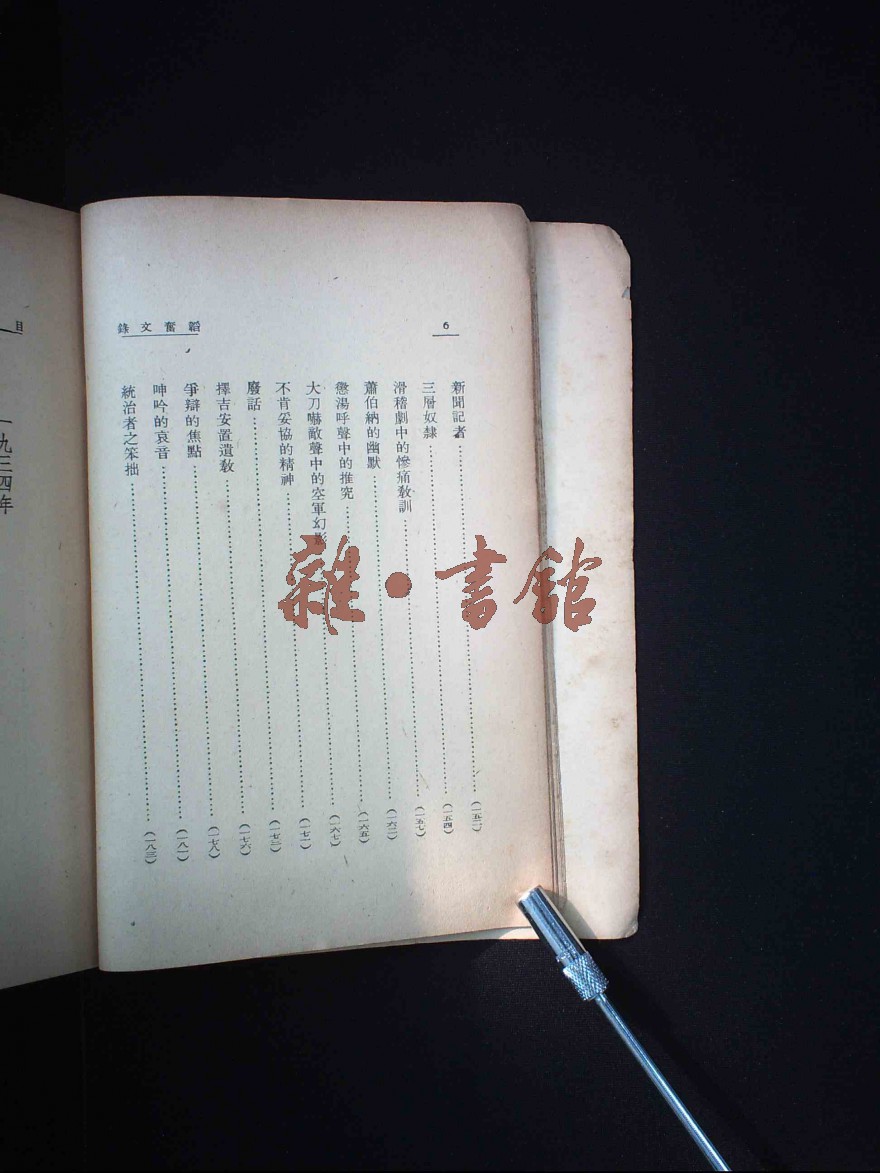 韜奮文錄
6
新聞記者……(一五二)
三層奴隸……(一五四)
滑稽劇中的慘痛教訓……(一五七)
蕭伯納的幽默……(一六二)
懲湯呼聲中的推究……(一六五)
大刀嚇敵聲中的空軍幻影……(一六七)
不肯妥協的精神……(一七一)
廢話……(一七三)
擇吉安置遺教……(一七六)
爭辯的焦點……(一七八)
呻吟的哀音……(一八一)
統治者之笨拙……(一八三)
目
一九三四年
雜·書館